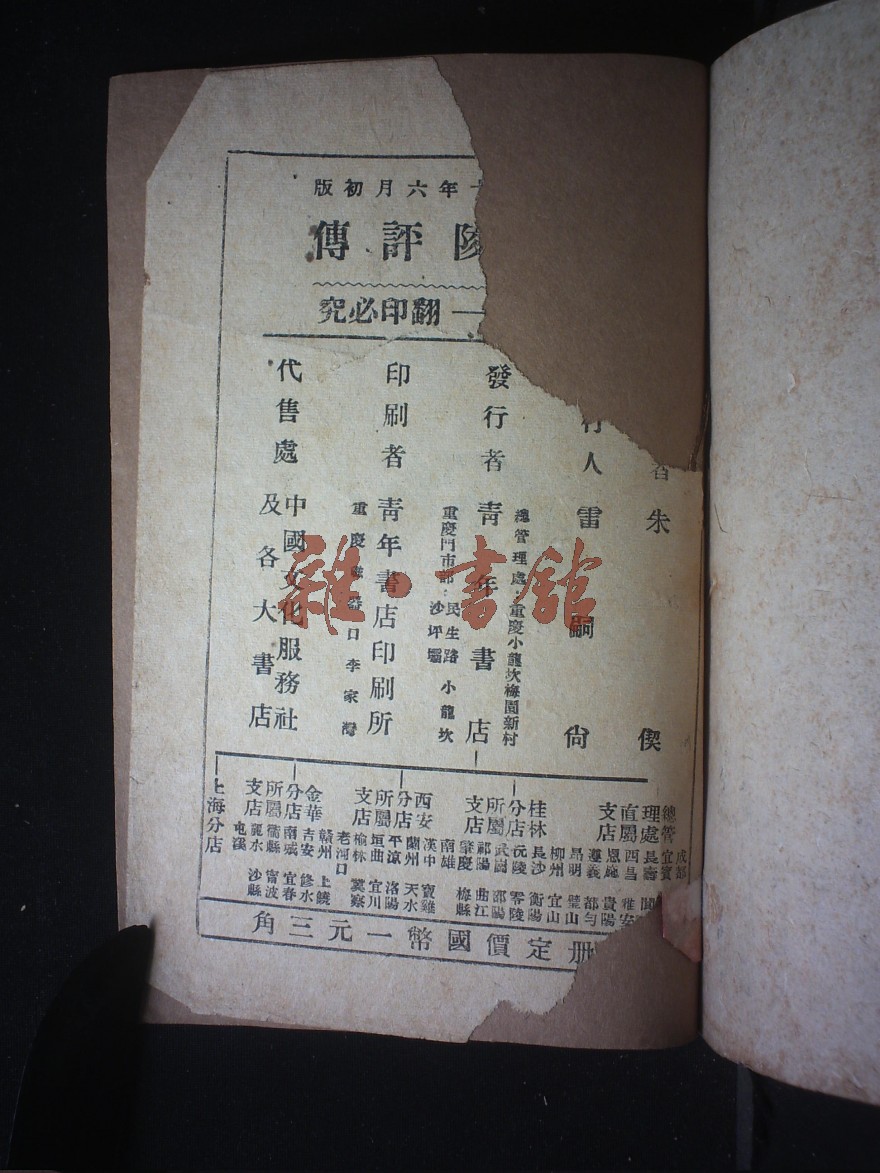 年六月初版
評傳
翻印必究
者 朱 偰
行人 雷 嗣 尙
發行者 靑年書店
總管理處：重慶小龍坎梅園新村
重慶門市部：民生路 小龍坎
沙坪壩
印刷者 靑年書店印刷所
重慶 口李家灣
代售處 中國文化服務社
及各大書店
總管理處直屬支店
成都 宜賓 長壽 西昌 雅安 恩施 貴陽 遵義 都勻 昆明 璧山
桂林分店所屬支店
柳州 宜山 長沙 衡陽 沅陵 零陵 武岡 邵陽 祁陽 曲江 肇慶 梅縣 南雄
西安分店所屬支店
漢中 寶雞 蘭州 天水 平涼 洛陽 垣曲 宜川 榆林 冀察 老河口
金華分店所屬支店
贛州 上饒 吉安 修水 南城 宜春 衢縣 寧波 麗水 沙縣 屯溪
上海分店
册定價國幣一元三角
雜·書館